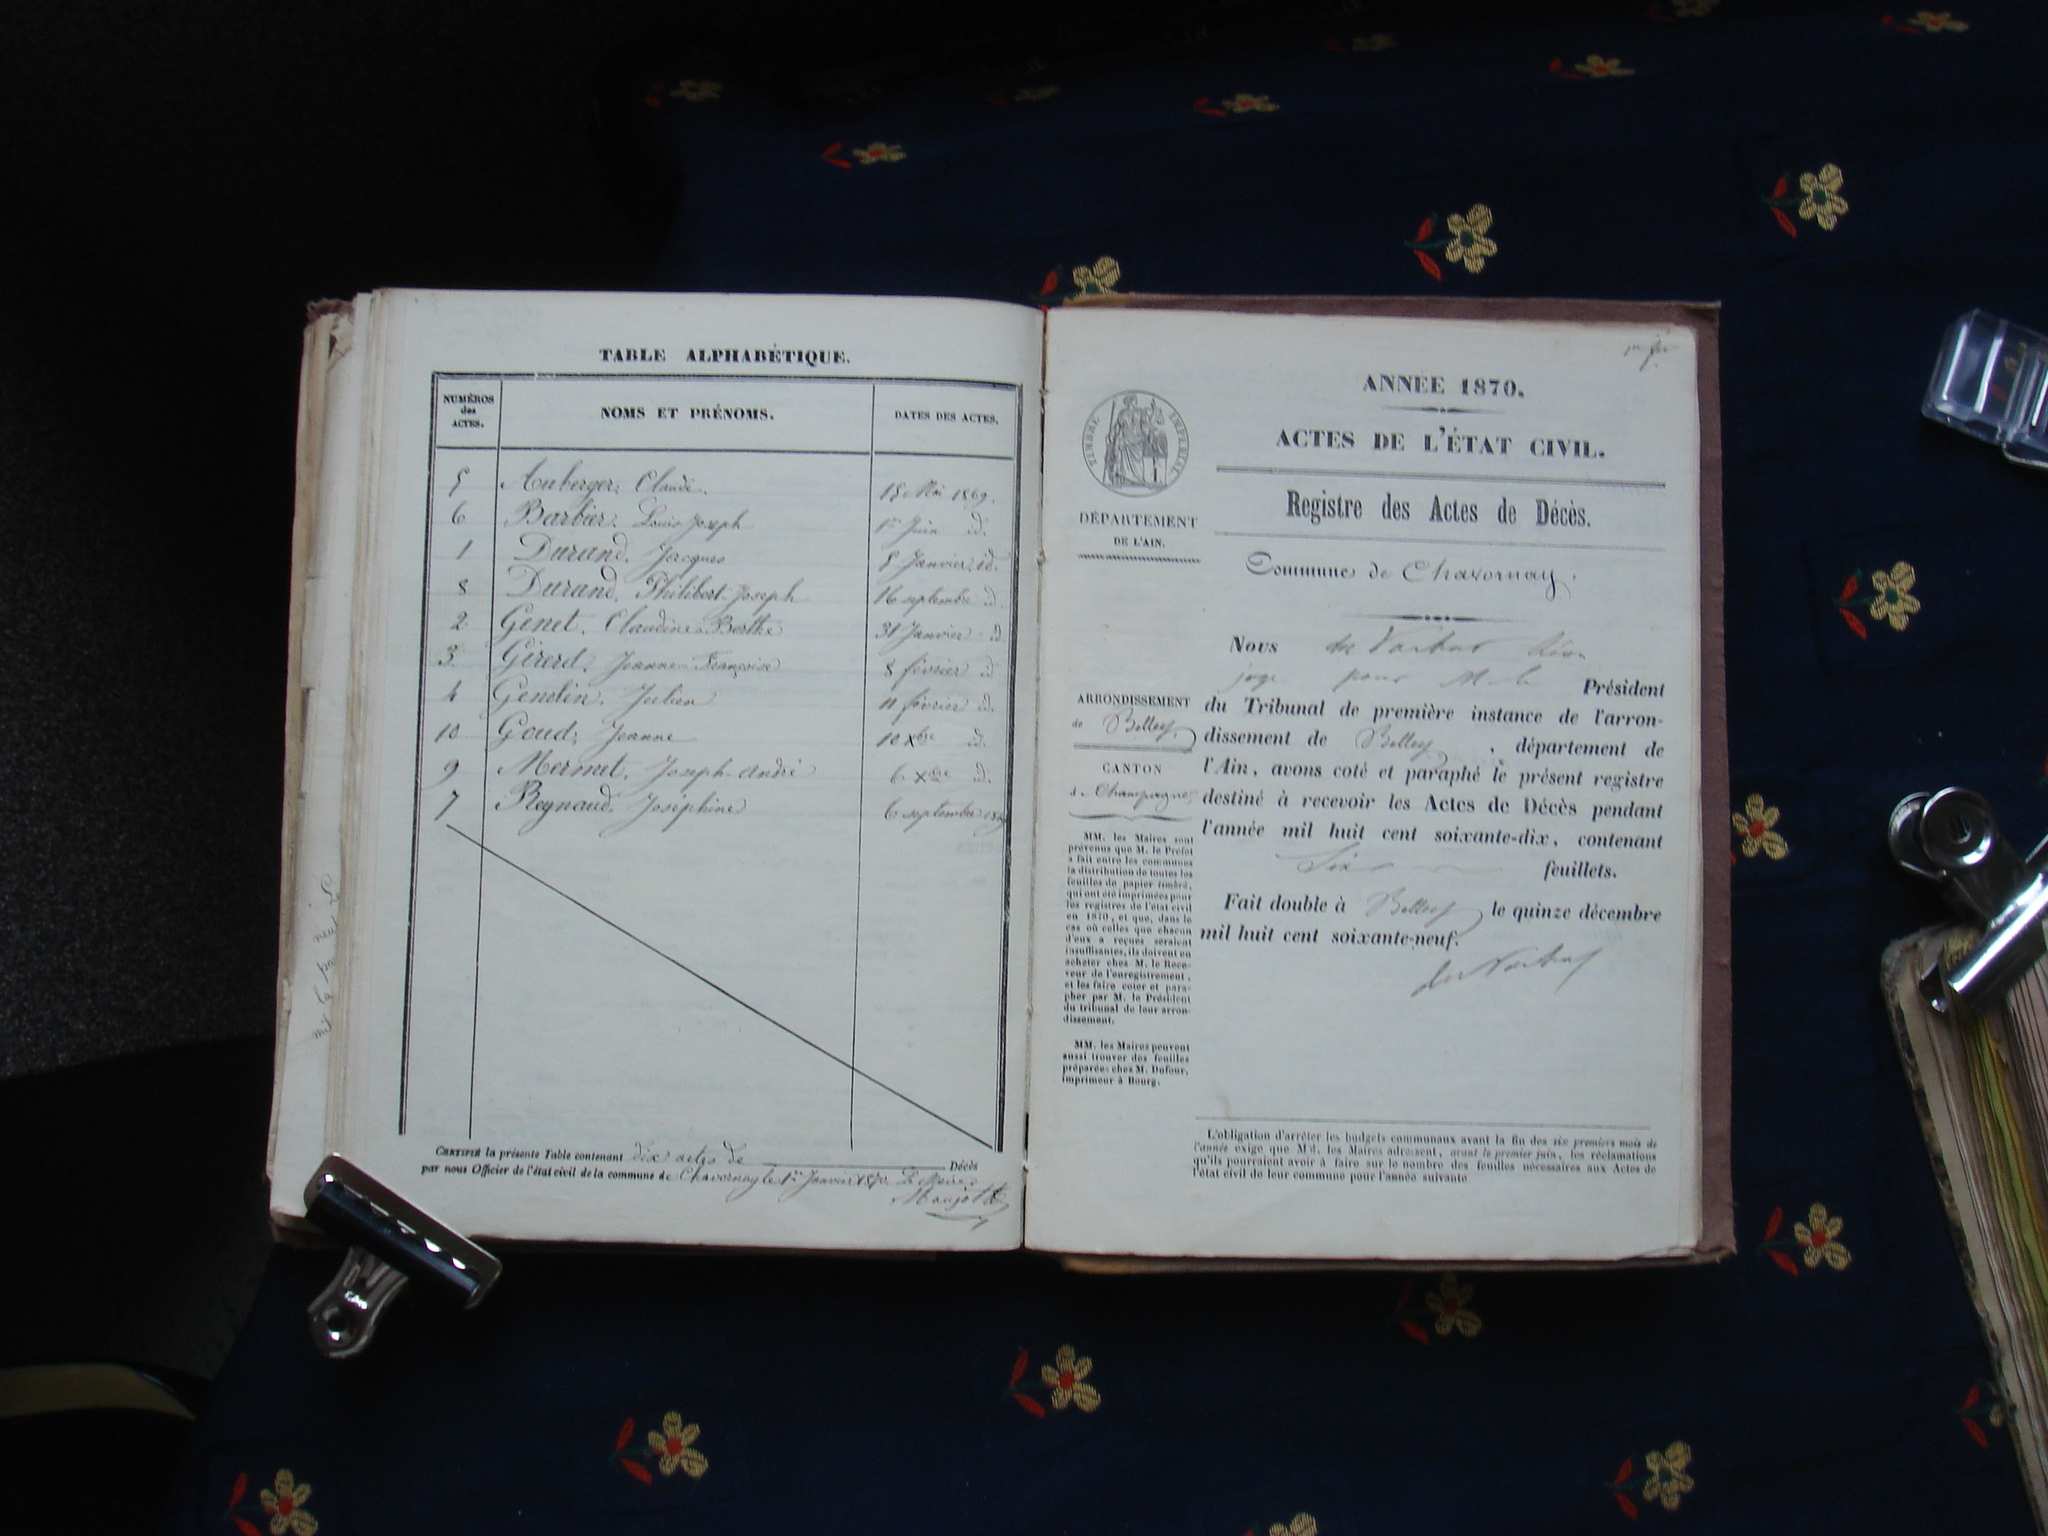 TABLE ALPHABÉTIQUE.
NUMÉROS des ACTES. NOMS ET PRÉNOMS. DATES DES ACTES.
5 Auberger, Claude. 18 Mai 1869.
6 Barbier, Louis Joseph 1er Juin id.
1 Durand, Jacques 8 Janvier, id.
8 Durand, Philibert-Joseph 16 septembre id.
2 Genet, Claudine-Berthe 31 Janvier id
3 Girerd, Jeanne-Françoise 8 février id
4 Gendin, Julien 11 février id.
10 Goud, Jeanne 10 Xbre id.
9 Mermet, Joseph-André 6 Xbre id.
7 Reynaud, Joséphine 6 septembre 1869
CERTIFIÉ la présente Table contenant dix actes de Décès
par nous Officier de l'état civil de la commune de Chavornay le 1er Janvier 1870. Le Maire
ANNÉE 1870.
ACTES DE L'ÉTAT CIVIL.
Registre des Actes de Décès.
Commune de Chavornay.
TIMBRE IMPÉRIAL
DÉPARTEMENT
DE L'AIN.
ARRONDISSEMENT
de Belley,
CANTON
de Champagne
MM. les Maires sont
prévenus que M. le Préfet
a fait entre les communes
la distribution de toutes les
feuilles de papier timbré,
qui ont été imprimées pour
les registres de l'état civil
en 1870, et que, dans le
cas où celles que chacun
d'eux a reçues seraient
insuffisantes, ils doivent en
acheter chez M. le Rece-
veur de l'enregistrement,
et les faire coter et para-
pher par M. le Président
du tribunal de leur arron-
dissement.
MM. les Maires peuvent
aussi trouver des feuilles
préparées chez M. Dufour,
imprimeur à Bourg.
Nous
juge pour M. le Président
du Tribunal de première instance de l'arron-
dissement de Belley, département de
l'Ain, avons coté et paraphé le présent registre
destiné à recevoir les Actes de Décès pendant
l'année mil huit cent soixante-dix, contenant
Six feuillets.
Fait double à Belley le quinze décembre
mil huit cent soixante-neuf.
L'obligation d'arrêter les budgets communaux avant la fin des six premiers mois de
l'année exige que MM. les Maires adressent, avant le premier juin, les réclamations
qu'ils pourraient avoir à faire sur le nombre des feuilles nécessaires aux Actes de
l'état civil de leur commune pour l'année suivante